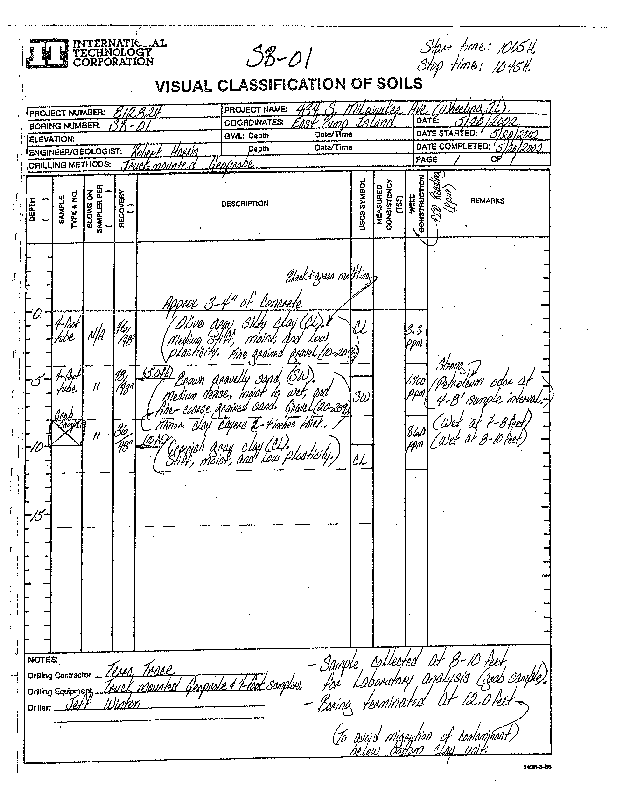 INTERNATIONAL
TECHNOLOGY
CORPORATION
SB-01
Start time: 1005H
Stop time: 1045H
VISUAL CLASSIFICATION OF SOILS
PROJECT NUMBER:
PROJECT NAME: 494 S. Milwaukee Ave. (Wheeling, IL)
BORING NUMBER: SB-01
COORDINATES: East Pump Island
DATE: 5/20/2002
ELEVATION:
GWL: Depth Date/Time
DATE STARTED: 5/20/2002
ENGINEER/GEOLOGIST: Robert
Depth Date/Time
DATE COMPLETED: 5/20/2002
DRILLING METHODS: Truck mounted Geoprobe
PAGE 1 OF 1
DEPTH
SAMPLE TYPE & NO.
BLOWS ON SAMPLER PER ( )
RECOVERY ( )
DESCRIPTION
USCS SYMBOL
MEASURED CONSISTENCY (TSF)
WELL CONSTRUCTION
PID Reading (ppm)
REMARKS
Black & green mottling
0
Approx 3-4" of Concrete
4-foot tube
N/A
(Olive gray silty clay (CL).
medium stiff, moist, and low
plasticity. Fine grained gravel (10-20%)
CL
3.3 ppm
5
4-foot tube
"
48/48"
(5.0ft)
Brown gravelly sand (SW)
medium dense, moist to wet, and
fine-coarse grained sand. Gravel (20-30%)
Thin clay layers 2-4 inches thick.
SW
ppm
Strong
(Petroleum odor at
4-8' sample interval.)
Grab Sample
"
36/48"
10
gray clay (CL).
Stiff, moist, and low plasticity.)
CL
860 ppm
(Wet at 7-8 feet)
(Wet at 8-10 feet)
15
NOTES:
Drilling Contractor Terra Trace
Drilling Equipment Truck mounted Geoprobe & 4-foot samplers
Driller: Jeff
- Sample collected at 8-10 feet
for Laboratory Analysis (grab sample).
- Boring terminated at 12.0 feet
(To avoid migration of contaminant)
below bottom clay unit.